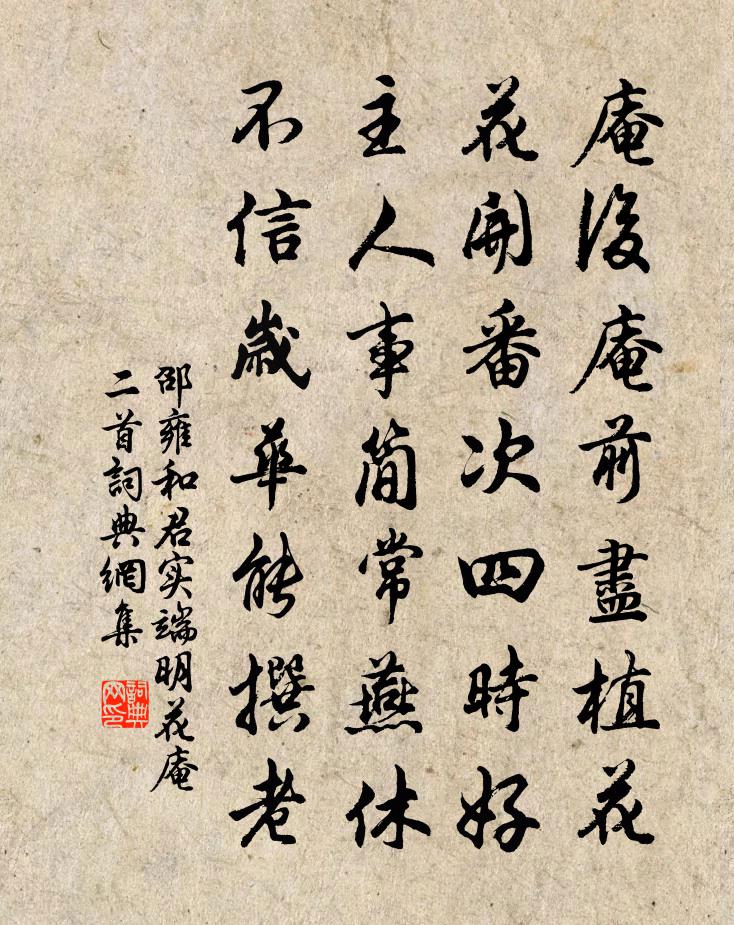 庵後庵前盡植花
花開番次四時好
主人事簡常燕休
不信歲華能撰老
邵雍和君实端明花庵
二首詞典網集
詞典网印